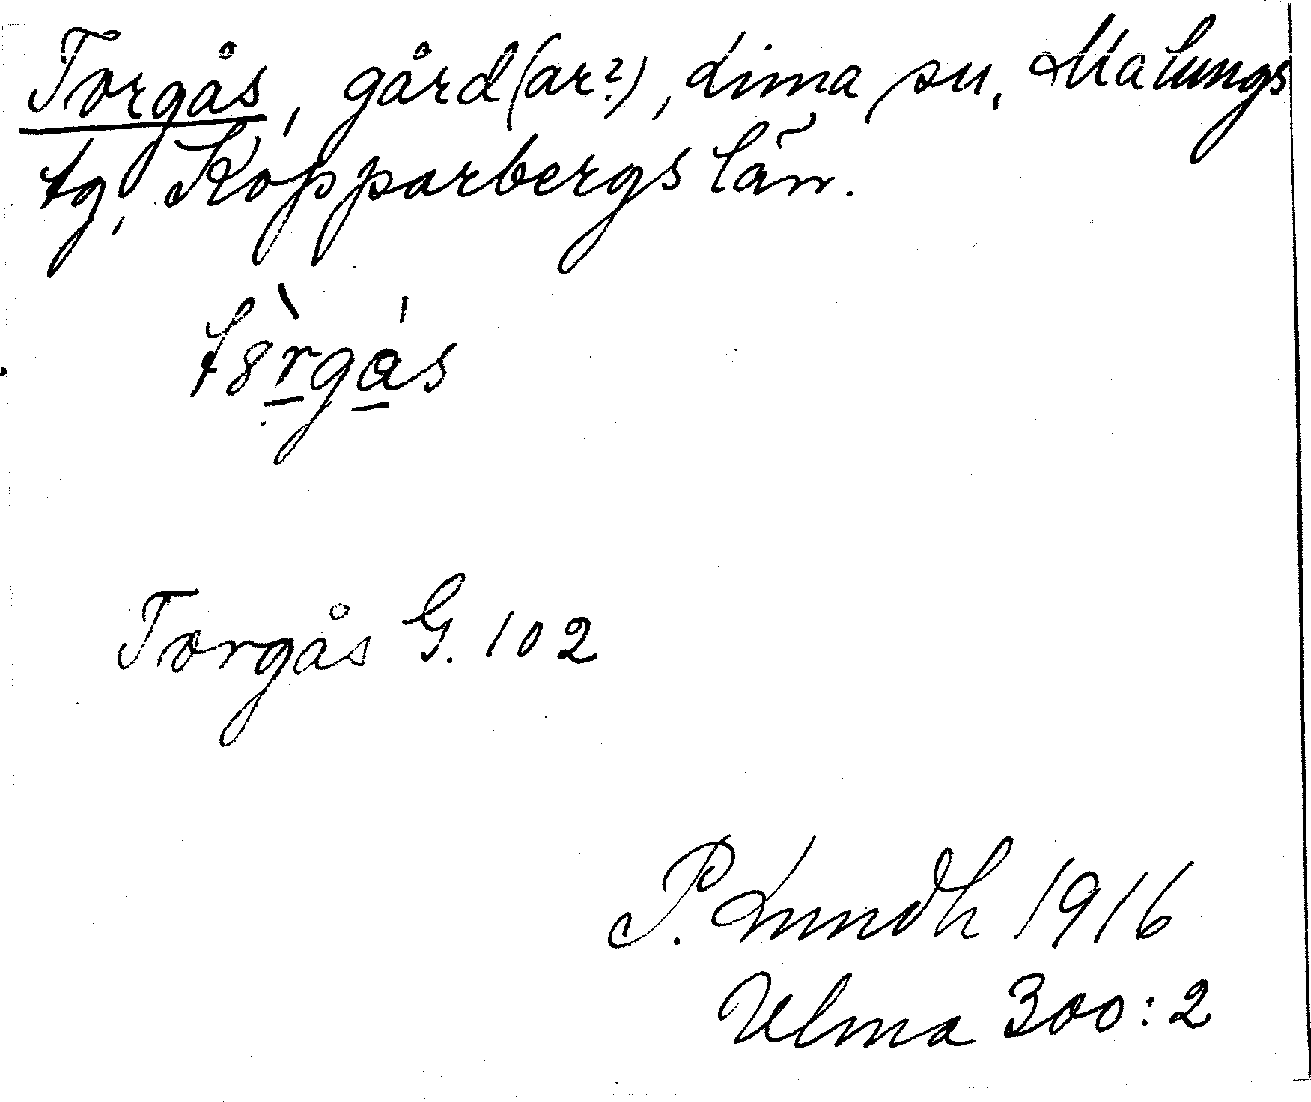 Torgås, gård(ar?), Lima sn, Malungs
tg, Kopparbergs län.
t8̀rgás
Torgås G. 102
P. Lundh 1916
Ulma 300:2